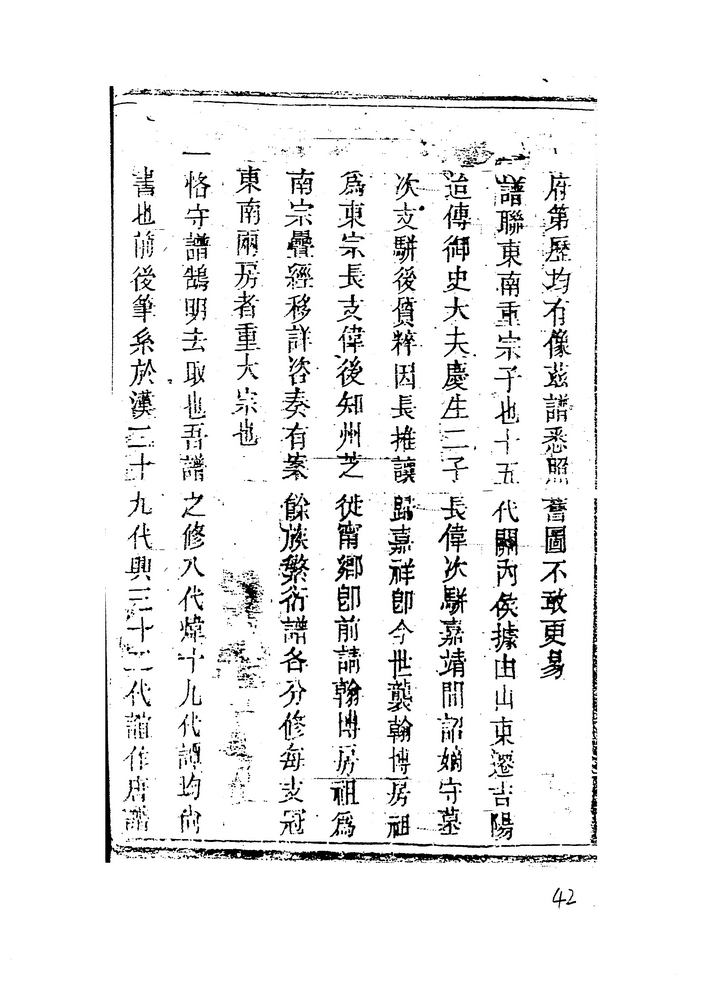 府第歷均有像茲譜悉照舊圖不敢更易
一譜聯東南重宗子也十五代關內侯據由山東遷吉陽
迨傳御史大夫慶生二子長偉次駢嘉靖間詔嫡守墓
次支駢後質粹因長推讓歸嘉祥卽今世襲翰博房祖
爲東宗長支偉後知州芝徙甯鄉卽前請翰博房祖爲
南宗疊經移詳咨奏有案餘族繁衍譜各分修每支冠
東南兩房者重大宗也
一恪守譜鵠明去取也吾譜之修八代煒十九代譚均尙
書也前後筆系於漢二十九代興三十二代誼作唐譜
42